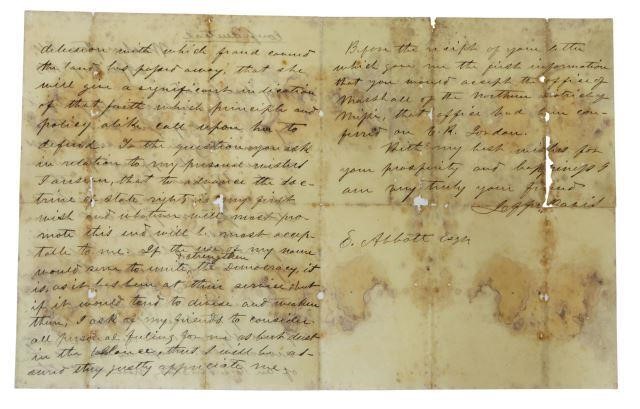 delusion with which fraud covered
the land has passed away, that she
will give a significant indication
of that faith which principle and
policy alike call upon her to
defend. To the question you ask
in relation to my personal wishes
I answer, that to advance the doc-
trine of state rights is my first
wish and whatever will most pro-
mote this end will be most accep-
table to me. If the use of my name
would serve to unite, & strengthen the Democracy, it
is, as it has been at their service, but
if it would tend to divide and weaken
them, I ask of my friends to consider
all personal feeling for me as but dust
in the balance, thus I will be as-
sured they justly appreciate me.
Before the receipt of your letter
which gave me the first information
that you would accept the office of
Marshall of the Northern District of
Missi, that office had been con-
ferred on
With my best wishes for
your prosperity and happiness I
am very truly your friend
Jeffn Davis
E. Abbott esqr